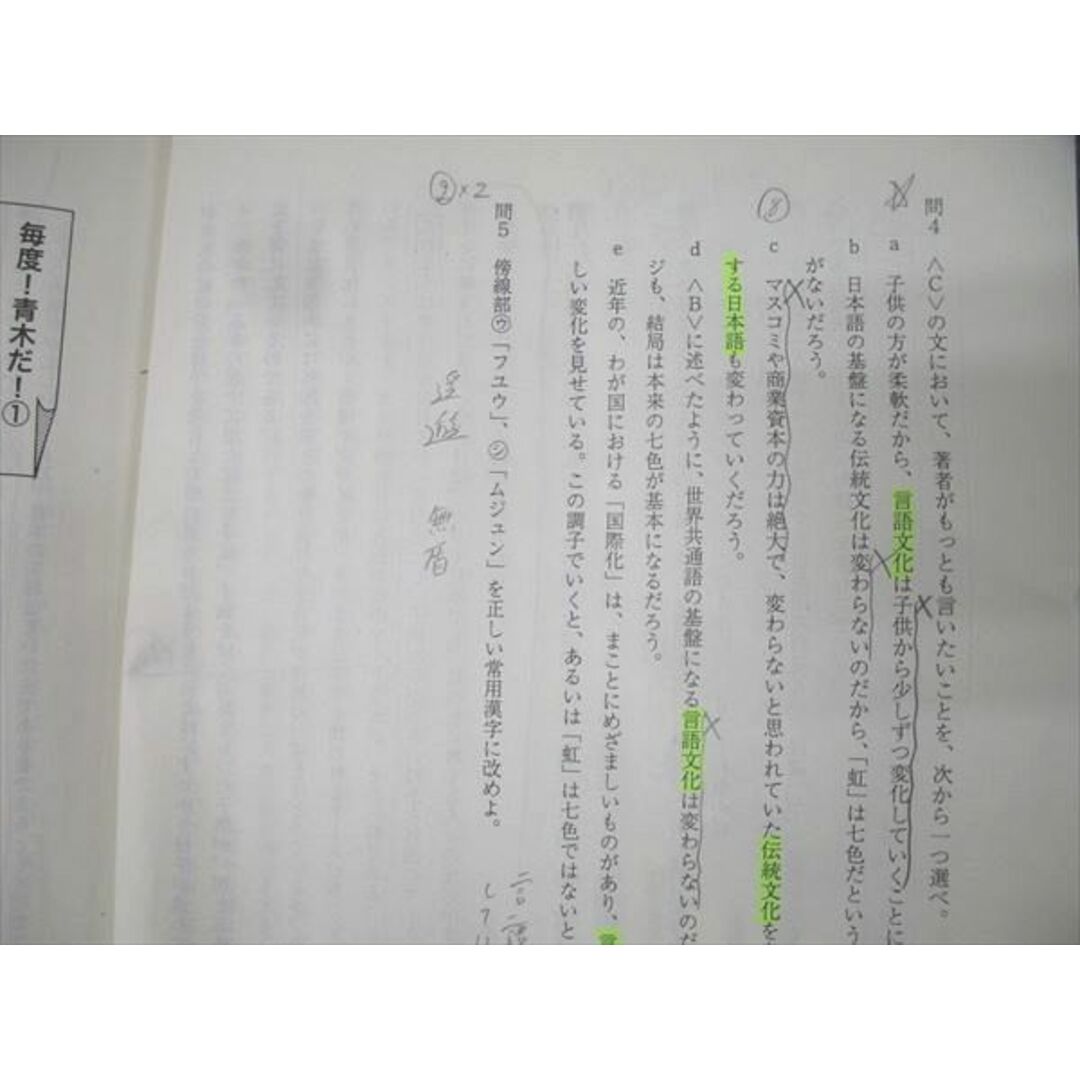 問4 〈C〉の文において、著者がもっとも言いたいことを、次から一つ選べ。
a 子供の方が柔軟だから、言語文化は子供から少しずつ変化していくことに
b 日本語の基盤になる伝統文化は変わらないのだから、「虹」は七色だという
がないだろう。
⑧
c マスコミや商業資本の力は絶大で、変わらないと思われていた伝統文化を
する日本語も変わっていくだろう。
d 〈B〉に述べたように、世界共通語の基盤になる言語文化は変わらないのだ
ジも、結局は本来の七色が基本になるだろう。
e 近年の、わが国における「国際化」は、まことにめざましいものがあり、言
しい変化を見せている。この調子でいくと、あるいは「虹」は七色ではないと
②×2
問5 傍線部㋒「フユウ」、㋛「ムジュン」を正しい常用漢字に改めよ。
毎度!青木だ!①